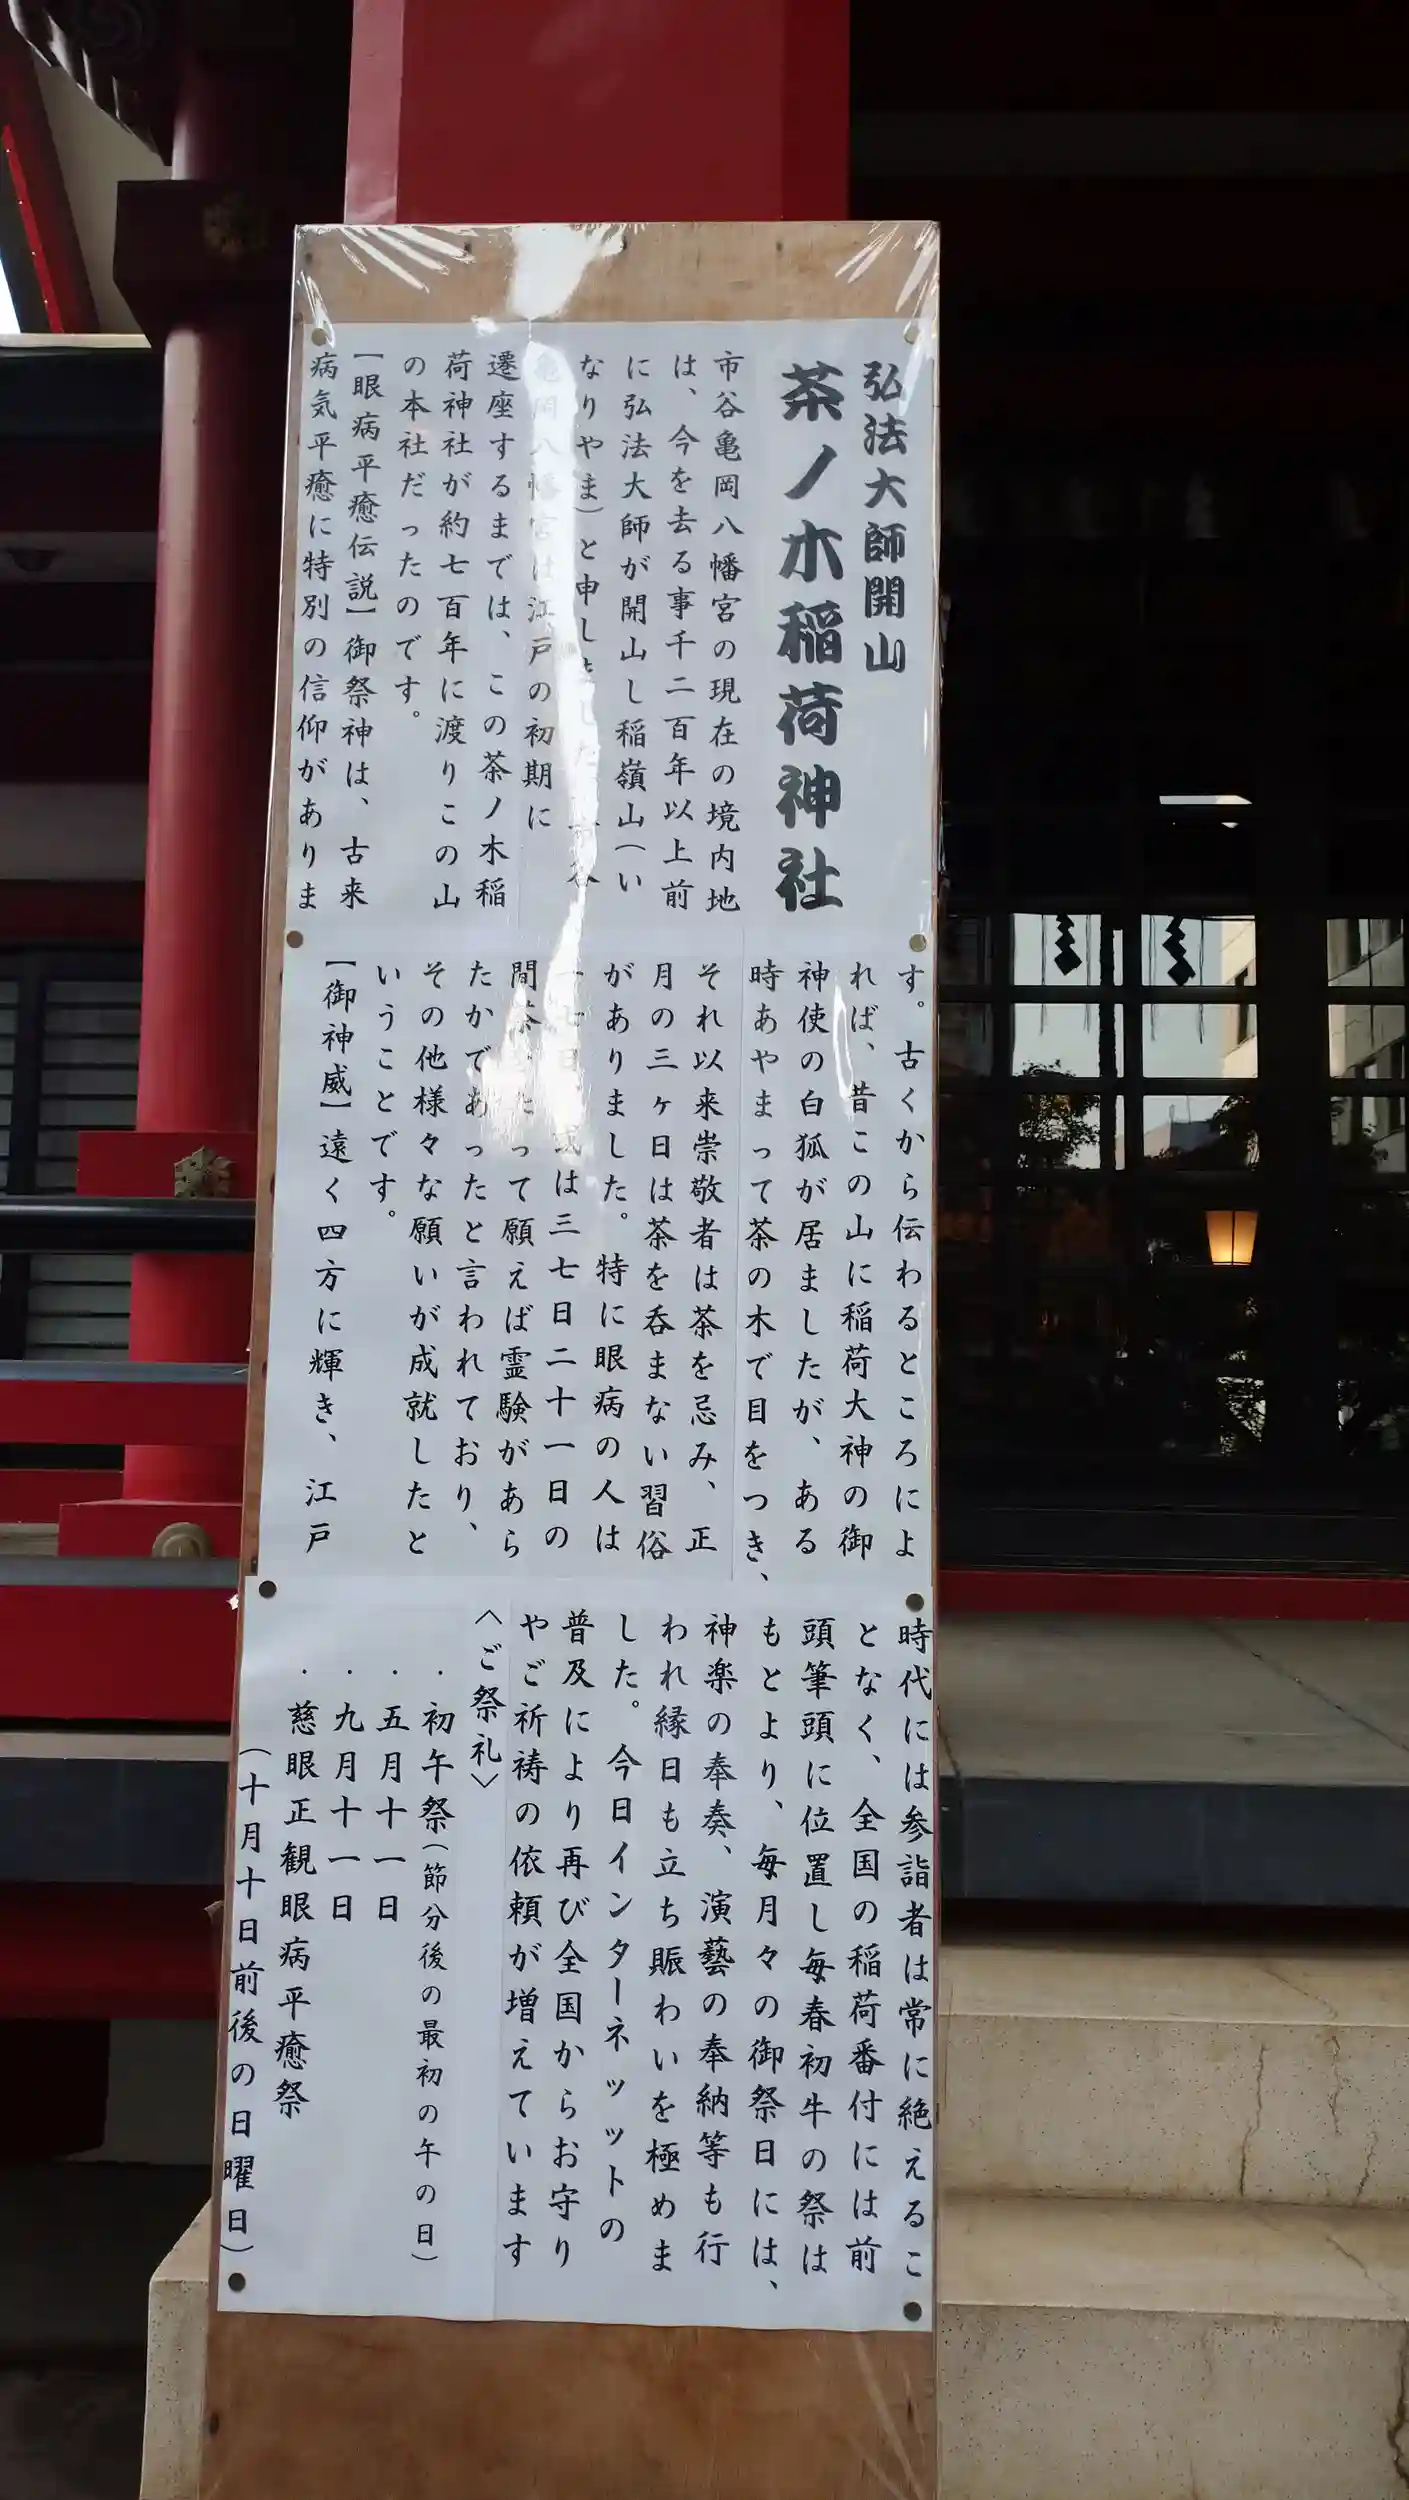 弘法大師開山
茶ノ木稲荷神社
市谷亀岡八幡宮の現在の境内地
は、今を去る事千二百年以上前
に弘法大師が開山し稲嶺山(い
なりやま)と申しました
亀岡八幡宮は江戸の初期に
遷座するまでは、この茶ノ木稲
荷神社が約七百年に渡りこの山
の本社だったのです。
【眼病平癒伝説】御祭神は、古来
病気平癒に特別の信仰がありま
す。古くから伝わるところによ
れば、昔この山に稲荷大神の御
神使の白狐が居ましたが、ある
時あやまって茶の木で目をつき、
それ以来崇敬者は茶を忌み、正
月の三ヶ日は茶を呑まない習俗
がありました。特に眼病の人は
一七日或は三七日二十一日の
間茶って願えば霊験があら
たかであったと言われており、
その他様々な願いが成就したと
いうことです。
【御神威】遠く四方に輝き、江戸
時代には参詣者は常に絶えるこ
となく、全国の稲荷番付には前
頭筆頭に位置し毎春初牛の祭は
もとより、毎月々の御祭日には、
神楽の奉奏、演藝の奉納等も行
われ縁日も立ち賑わいを極めま
した。今日インターネッットの
普及により再び全国からお守り
やご祈祷の依頼が増えています
〈ご祭礼〉
・初午祭(節分後の最初の午の日)
・五月十一日
・九月十一日
・慈眼正観眼病平癒祭
(十月十日前後の日曜日)